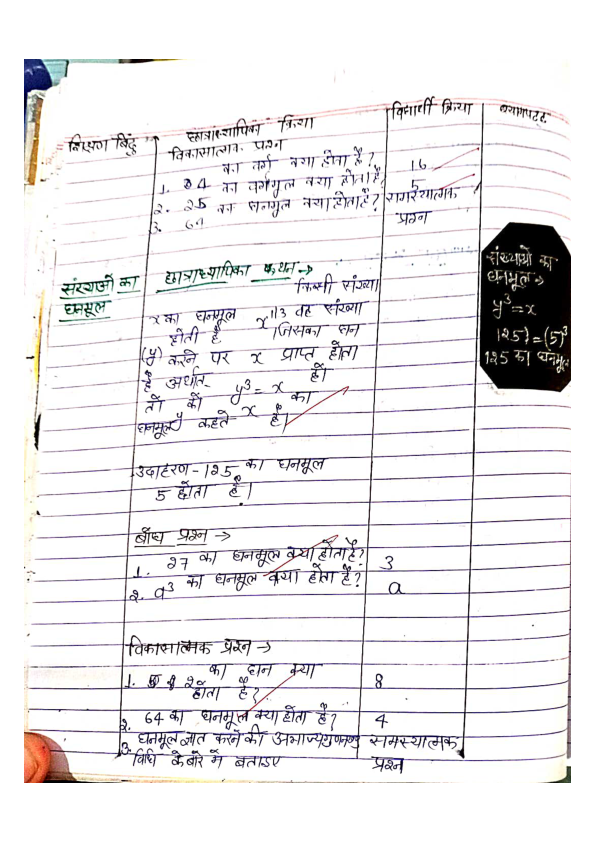 शिक्षण बिंदु
छात्राध्यापिका क्रिया
विद्यार्थी क्रिया
श्यामपट्ट
विकासात्मक प्रश्न
1. 4 का वर्ग क्या होता है?
16
2. 25 का वर्गमूल क्या होता है?
5
3. 64 का घनमूल क्या होता है?
समस्यात्मक
प्रश्न
संख्याओं का
घनमूल
छात्राध्यापिका कथन →
किसी संख्या
x का घनमूल x^1/3 वह संख्या
होती है जिसका घन
(y) करने पर x प्राप्त होता
है अर्थात y³ = x हो
तो को x का
घनमूल y कहते है।
संख्याओ का
घनमूल →
y³ = x
125) = (5)³
125 का घनमूल
उदाहरण - 125 का घनमूल
5 होता है।
बोध प्रश्न →
1. 27 का घनमूल क्या होता है?
3
2. a³ का घनमूल क्या होता है?
a
विकासात्मक प्रश्न →
1. 2 का घन क्या
होता है?
8
2. 64 का घनमूल क्या होता है?
4
3. घनमूल ज्ञात करने की अभाज्यगुणनखण्ड
समस्यात्मक
विधि के बारे में बताइए
प्रश्न